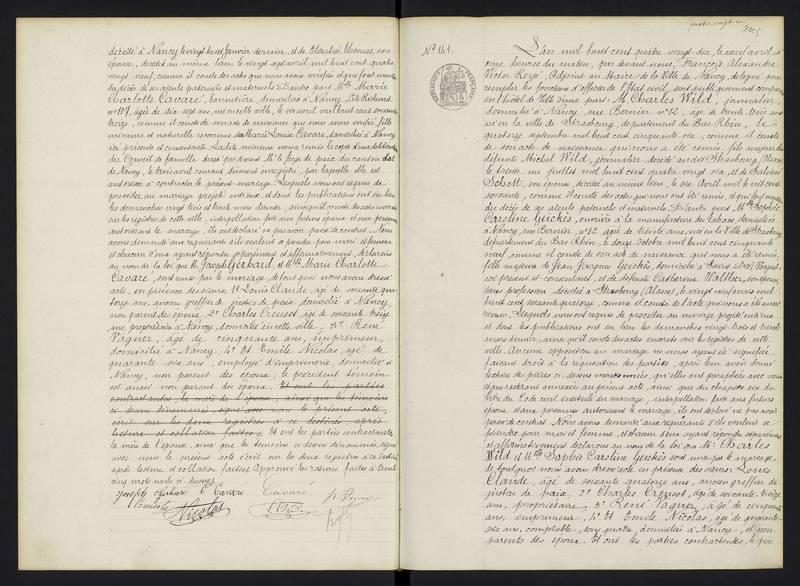 décédé à Nancy le vingt huit Janvier dernier, et de Thomas, son
épouse, décédée au même lieu, le vingt sept avril mil huit cent quatre
vingt neuf, comme il conste des actes que nous avons vérifiés
du décès de ses aguls paternels et maternels D'autre part Mlle Marie
Charlotte Cavare, bonnetière, domiciliée à Nancy,
No 107, âgée de dix sept ans, née en cette ville, le avril mil huit cent soixante
treize, comme il conste de son acte de naissance que nous avons vérifié, fille
mineure et naturelle reconnue de Marie Louise Cavare, domiciliée à Nancy
ici présente et consentante. Ladite mineure nous a remis la copie d'une délibération
du Conseil de famille, tenu par devant Mr le Juge de paix du canton
de Nancy, le trois avril courant dûment enregistré, par laquelle elle est
autorisée à contracter le présent mariage. Lesquels nous ont requis de
procéder au mariage projeté entr'eux et dont les publications ont eu lieu
les dimanches vingt trois et trente mars dernier, ainsi qu'il conste des actes inscrits
sur les registres de cette ville, interpellation faite aux futurs époux et aux personnes
autorisant le mariage, ils ont déclaré ne pas avoir passé de contrat. Nous
avons demandé aux requérants s'ils veulent se prendre pour mari et femme
et chacun d'eux ayant répondu séparément et affirmativement, déclarons
au nom de la loi que Mr Joseph Gerhard et Mlle Marie Charlotte
Cavare, sont unis par le mariage, de tout quoi nous avons dressé
acte, en présence des sieurs 1° Louis Claude, âgé de soixante qua-
torze ans, ancien greffier de justice de paix domicilié à Nancy,
non parent des époux. 2° Charles Creusot, âgé de soixante treize
ans, propriétaire à Nancy, domicilié en cette ville, 3° René
Vagner, âgé de cinquante ans, imprimeur,
domicilié à Nancy, 4° Et Emile Nicolas, âgé de
quarante six ans, employé d'imprimerie, domicilié à
Nancy, non parent des époux, le précédent témoin
est aussi non parent des époux. Et ont les parties
contractantes la mère de l'épouse, ainsi que les témoins
ci dessus dénommés signé avec nous le présent acte
écrit sur les deux registres à ce destinés, après
lecture et collation faites. Et ont les parties contractantes
la mère de l'épouse, ainsi que les témoins ci dessus dénommés, signé
avec nous le présent acte écrit sur les deux registres à ce destinés
après lecture et collation faites. Approuvé les ratures faites à trente
cinq mots nuls ci dessus.
Joseph Gerhard C Cavare Cavaré R. Vagner
Creusot Nicolas L. Claude
No 141.
L'an mil huit cent quatre vingt dix, le neuf avril, à
onze heures du matin, par devant nous, François Alexandre
Victor Rozé, Adjoint au Maire de la Ville de Nancy, délégué pour
remplir les fonctions d'officier de l'état civil, sont publiquement comparus
en l'hôtel de Ville d'une part: M. Charles Wild, journalier,
domicilié à Nancy, rue Bernier No 12, âgé de trente trois ans
né en la ville de Strasbourg, département du Bas Rhin, le
quatorze septembre mil huit cent cinquante six, comme il conste
de son acte de naissance qui nous a été remis, fils majeur des
défunts Michel Wild, journalier, décédé au dit Strasbourg,
le trente un juillet mil huit cent quatre vingt six, et de Salomé
Schott, son épouse, décédée au même lieu, le six Avril mil huit cent
soixante, comme il conste des actes qui nous ont été remis,
du décès de ses aieuls paternels et maternels. D'autre part, Mlle Sophie
Caroline Geickés, ouvrière à la manufacture des tabacs, domiciliée
à Nancy, rue Bernier, No 12, âgée de trente ans, née en la Ville de Strasbourg
département du Bas Rhin, le douze Octobre mil huit cent cinquante
neuf, comme il conste de son acte de naissance, qui nous a été remis,
fille majeure de Jean Jacques Geickés, domicilié à
ici présent et consentant, et de défunte Catherine Walther, son épouse,
sans profession, décédée à Strasbourg (Alsace), le vingt neuf mars mil
huit cent soixante quatorze, comme il conste de l'acte qui nous a été aussi
remis. Lesquels nous ont requis de procéder au mariage projeté entr'eux
et dont les publications ont eu lieu les dimanches vingt trois et trente
mars dernier, ainsi qu'il conste des actes inscrits sur les registres de cette
ville. Aucune opposition au mariage ne nous ayant été signifiée,
faisant droit à la réquisition des parties, après leur avoir donné
lecture des pièces ci dessus énoncées, qu'elles ont paraphées avec nous
et qui resteront annexées au présent acte, ainsi que du chapitre six du
titre du Code civil intitulé du mariage, interpellation faite aux futurs
époux, et aux personnes autorisant le mariage, ils ont déclaré ne pas avoir
passé de contrat. Nous avons demandé aux requérants s'ils veulent se
prendre pour mari et femme, et chacun d'eux ayant répondu séparément
et affirmativement déclarons au nom de la loi que Mr Charles
Wild et Mlle Sophie Caroline Geickés sont unis par le mariage,
de tout quoi nous avons dressé acte en présence des sieurs Louis
Claude, âgé de soixante quatorze ans, ancien greffier de
justice de paix, 2° Charles Creusot, âgé de soixante treize
ans, propriétaire, 3° René Vagner, âgé de cinquante
ans, imprimeur, 4° Et Emile Nicolas, âgé de quarante
six ans, comptable, tous quatre domiciliés à Nancy, et non
parents des époux. Et ont les parties contractantes, le père